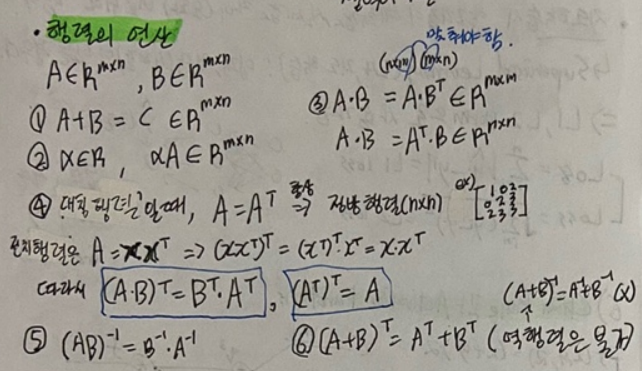 • 행렬의 연산
A∈R^{m×n}, B∈R^{m×n}
맞춰야 함.
(n×m)(m×n)
① A+B = C ∈R^{m×n}
② α∈R, αA∈R^{m×n}
③ A·B = A·B^T ∈R^{m×m}
A·B = A^T·B∈R^{n×n}
④ "대칭행렬"일때, A=A^T ⇒ 정방행렬(n×n) ex) [1 0 2 0 2 3 2 3 3]
항상
전치행렬은 A = xx^T ⇒ (xx^T)^T = (x^T)^T·x^T = x·x^T
따라서 (A·B)^T = B^T·A^T, (A^T)^T = A
(A+B)^{-1} = A^{-1}+B^{-1} (x)
⑤ (AB)^{-1} = B^{-1}·A^{-1}
⑥ (A+B)^T = A^T+B^T (역행렬은 불가)